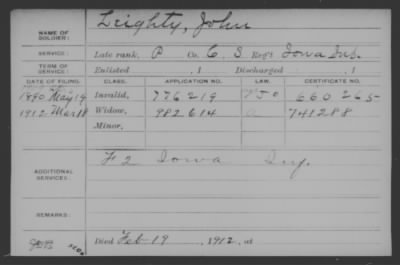 NAME OF SOLDIER: Leighty, John
SERVICE: Late rank, P Co. C, 3 Reg't Iowa Inf.
TERM OF SERVICE: Enlisted , 1 Discharged , 1
DATE OF FILING. CLASS. APPLICATION NO. LAW. CERTIFICATE NO.
1890 May 19 Invalid, 776219 660265
1912 Mar 18 Widow, 982614 a 741288
Minor,
ADDITIONAL SERVICES: F 2 Iowa Inf.
REMARKS:
Died Feb 19 , 1912, at